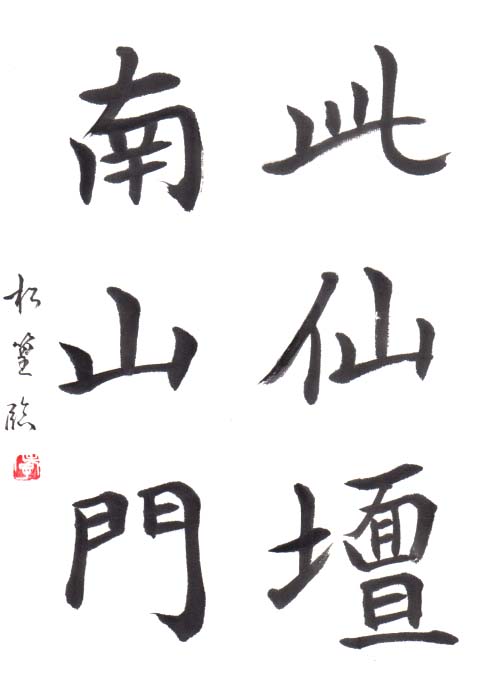 此仙壇
南山門
松篁臨